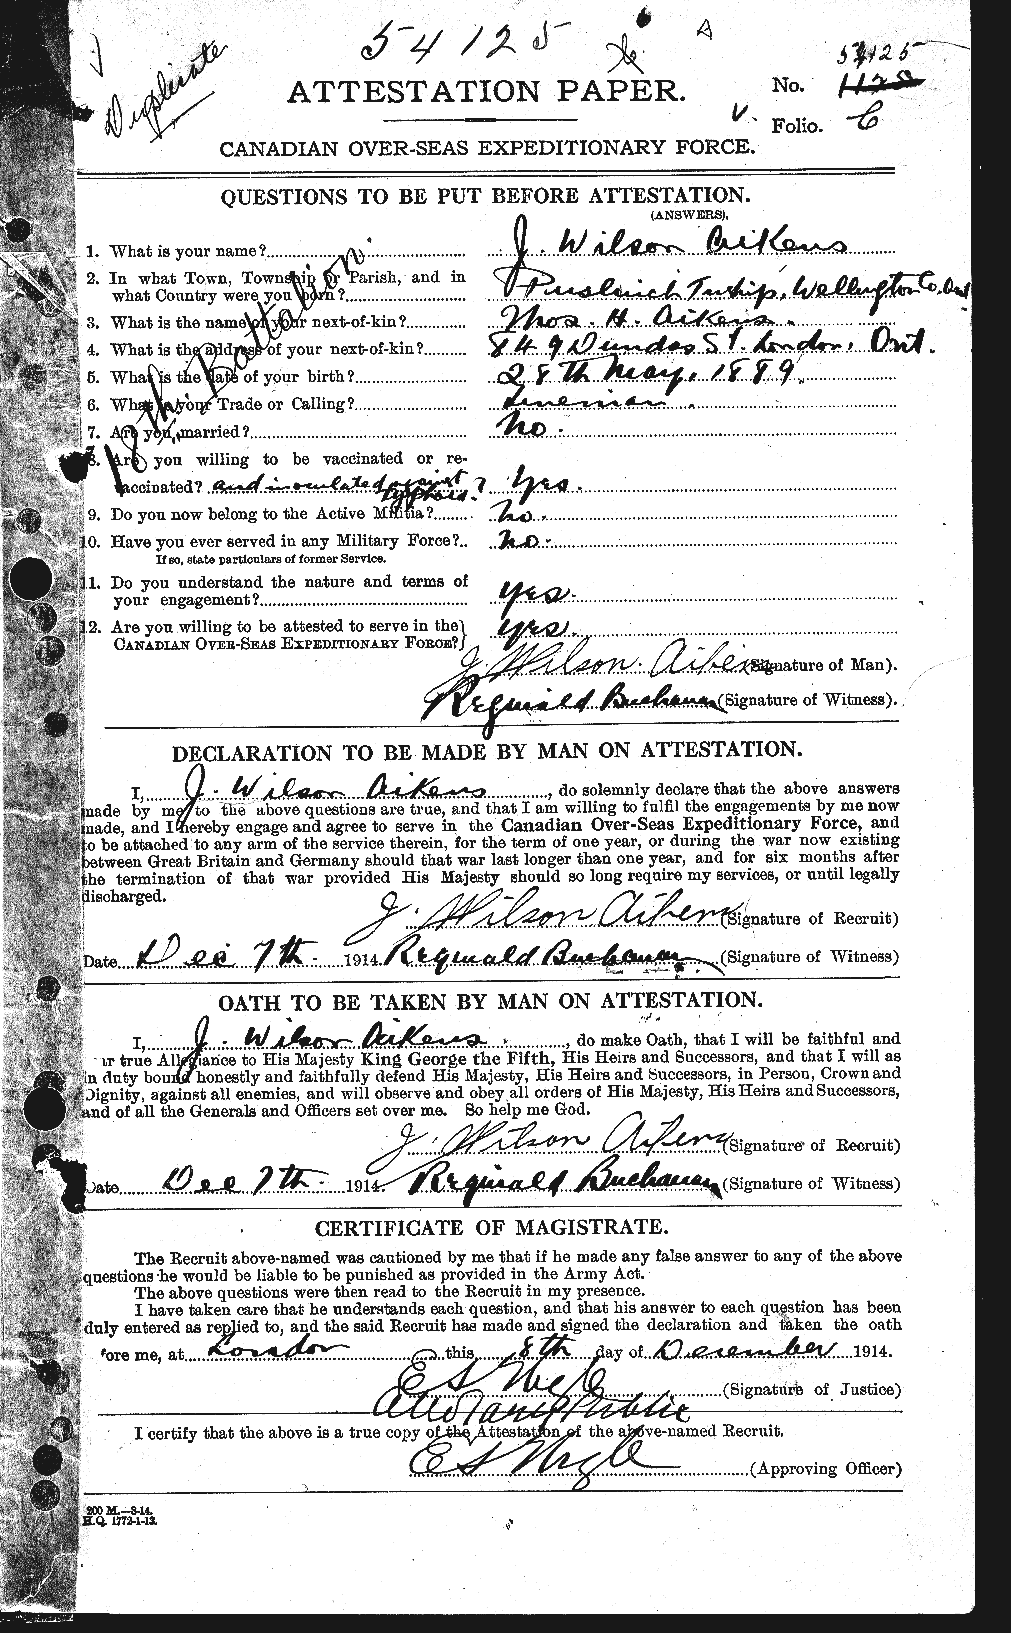 54125
A
Duplicate
ATTESTATION PAPER.
No. 54125
Folio. C
CANADIAN OVER-SEAS EXPEDITIONARY FORCE.
QUESTIONS TO BE PUT BEFORE ATTESTATION.
(ANSWERS).
18th. Battalion
1. What is your name? J. Wilson Aikens
2. In what Town, Township or Parish, and in
what Country were you born? Puslinch Twship, Wellington Co, Ont
3. What is the name of your next-of-kin? Thos. H. Aikens.
4. What is the address of your next-of-kin? 849 Dundas St. London, Ont.
5. What is the date of your birth? 28th May, 1889.
6. What is your Trade or Calling? Lineman.
7. Are you married? No.
8. Are you willing to be vaccinated or re-
vaccinated? and inoculated against typhoid? Yes.
9. Do you now belong to the Active Militia? No.
10. Have you ever served in any Military Force? No.
If so, state particulars of former Service.
11. Do you understand the nature and terms of
your engagement? Yes.
12. Are you willing to be attested to serve in the
CANADIAN OVER-SEAS EXPEDITIONARY FORCE? Yes.
J. Wilson Aikens (Signature of Man).
Reginald Buchanan (Signature of Witness).
DECLARATION TO BE MADE BY MAN ON ATTESTATION.
I, J. Wilson Aikens, do solemnly declare that the above answers
made by me to the above questions are true, and that I am willing to fulfil the engagements by me now
made, and I hereby engage and agree to serve in the Canadian Over-Seas Expeditionary Force, and
to be attached to any arm of the service therein, for the term of one year, or during the war now existing
between Great Britain and Germany should that war last longer than one year, and for six months after
the termination of that war provided His Majesty should so long require my services, or until legally
discharged.
J. Wilson Aikens (Signature of Recruit)
Date Dec 7th. 1914. Reginald Buchanan (Signature of Witness)
OATH TO BE TAKEN BY MAN ON ATTESTATION.
I, J. Wilson Aikens, do make Oath, that I will be faithful and
ur true Allegiance to His Majesty King George the Fifth, His Heirs and Successors, and that I will as
in duty bound honestly and faithfully defend His Majesty, His Heirs and Successors, in Person, Crown and
Dignity, against all enemies, and will observe and obey all orders of His Majesty, His Heirs and Successors,
and of all the Generals and Officers set over me. So help me God.
J. Wilson Aikens (Signature of Recruit)
Date Dec 7th. 1914. Reginald Buchanan (Signature of Witness)
CERTIFICATE OF MAGISTRATE.
The Recruit above-named was cautioned by me that if he made any false answer to any of the above
questions he would be liable to be punished as provided in the Army Act.
The above questions were then read to the Recruit in my presence.
I have taken care that he understands each question, and that his answer to each question has been
duly entered as replied to, and the said Recruit has made and signed the declaration and taken the oath
fore me, at London this 8th day of December 1914.
(Signature of Justice)
Notary Public
I certify that the above is a true copy of the Attestation of the above-named Recruit.
(Approving Officer)
200 M.—8-14.
H.Q. 1772-1-13.